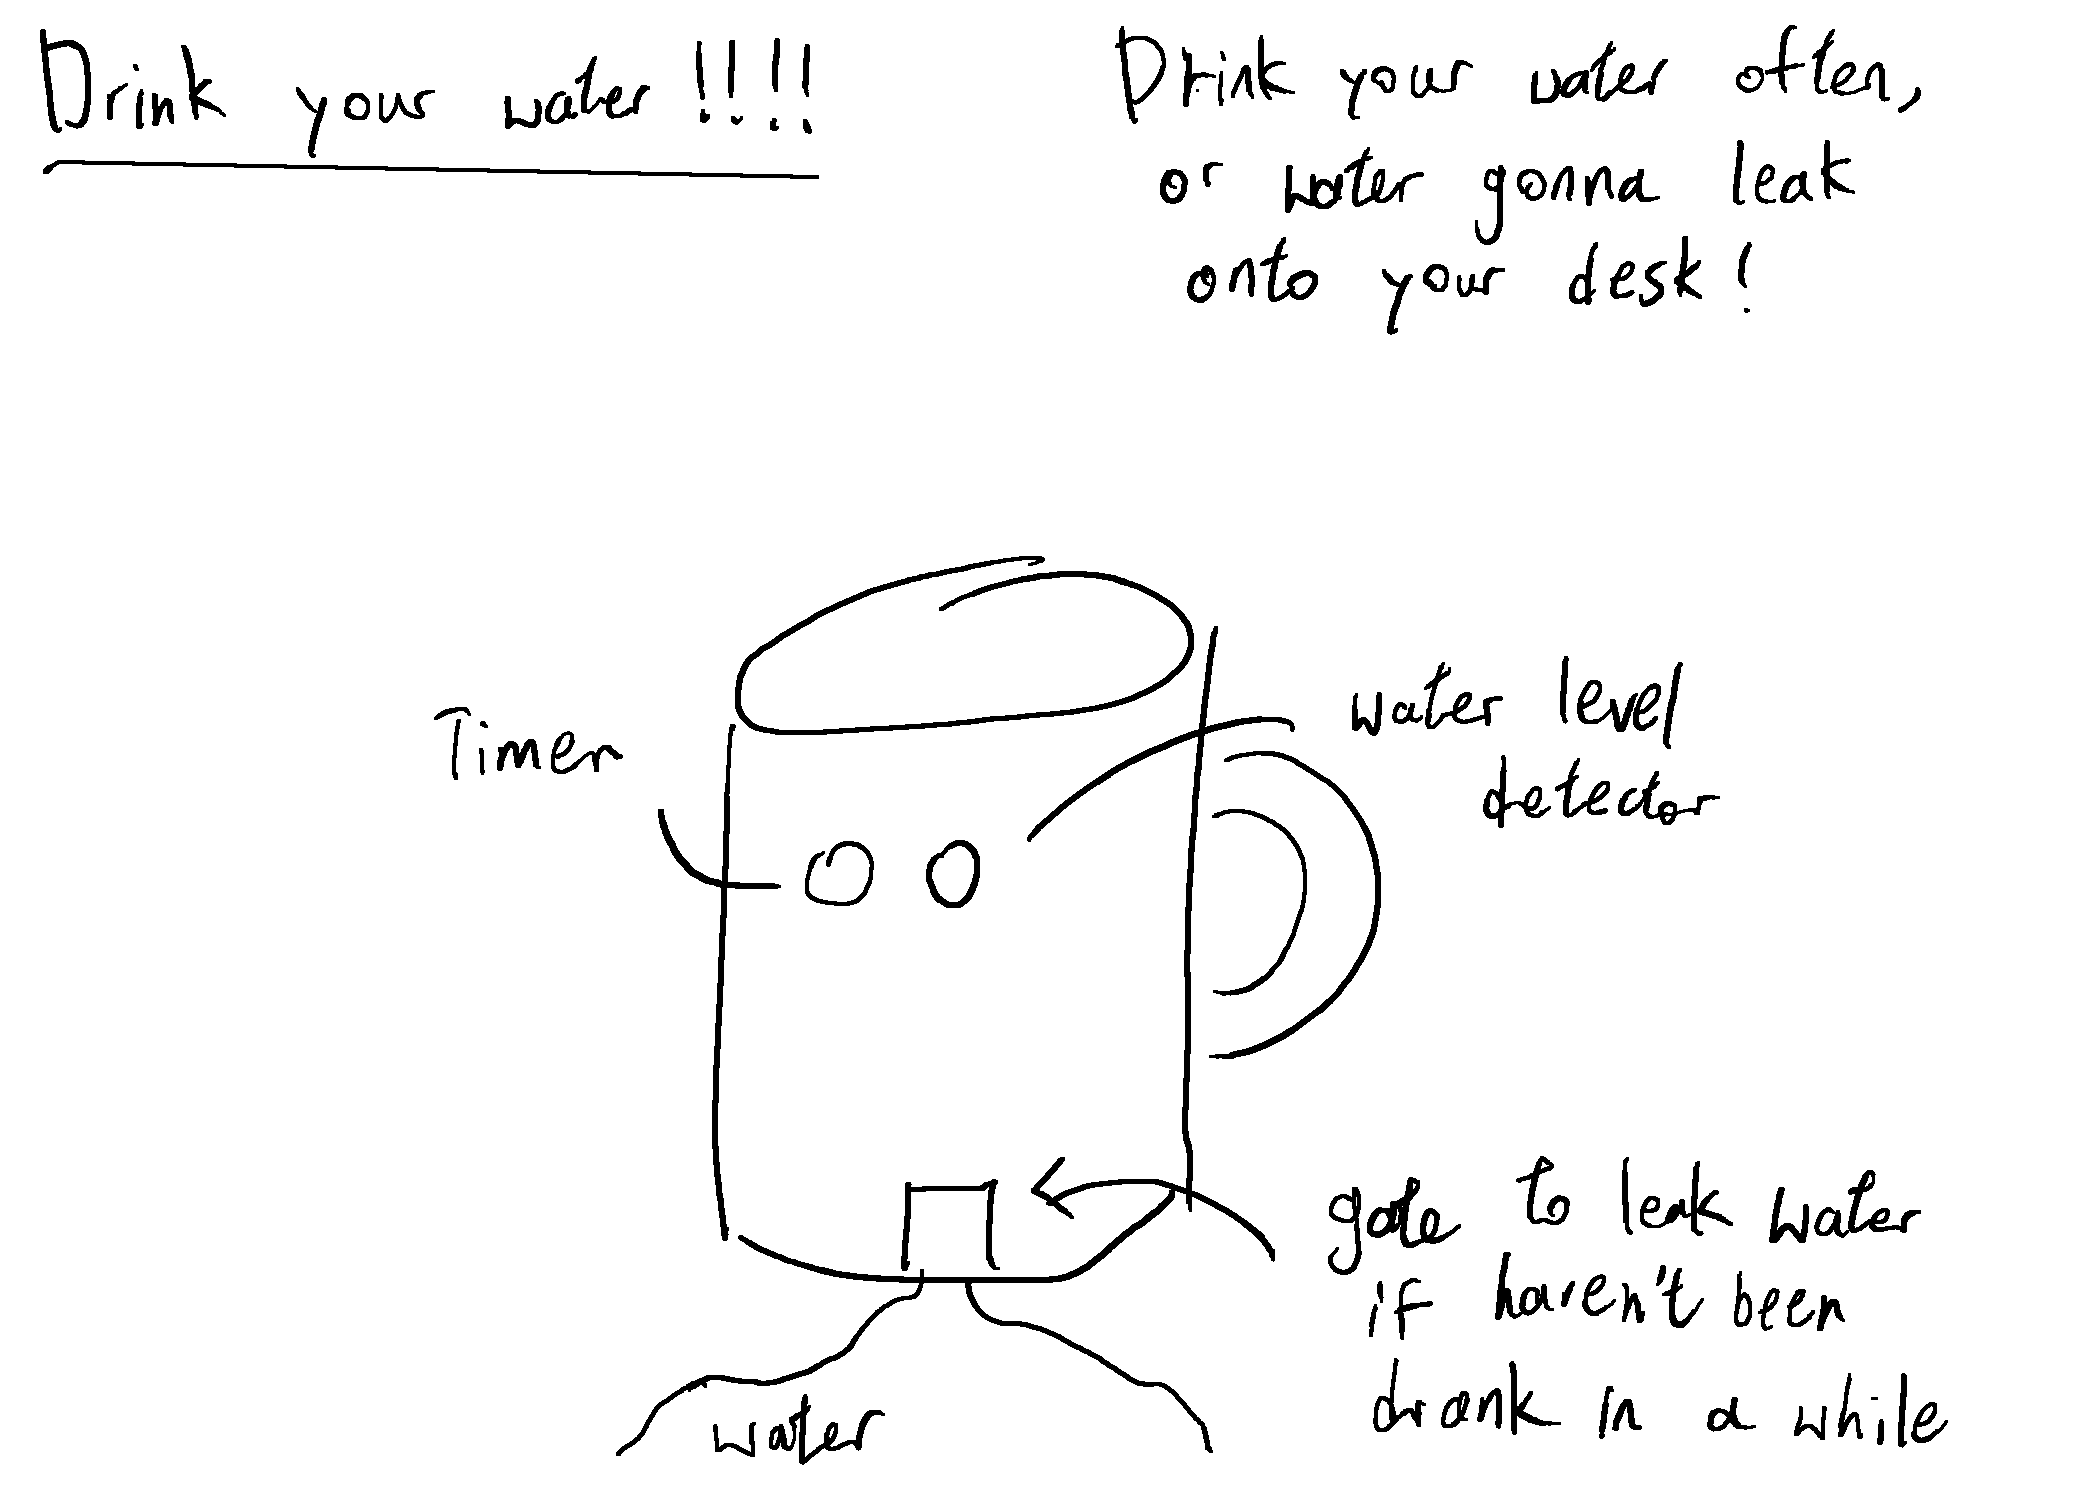 Drink your water !!!!
Drink your water often,
or water gonna leak
onto your desk!
Timer
water level
detector
gate to leak water
if haven't been
drank in a while
water